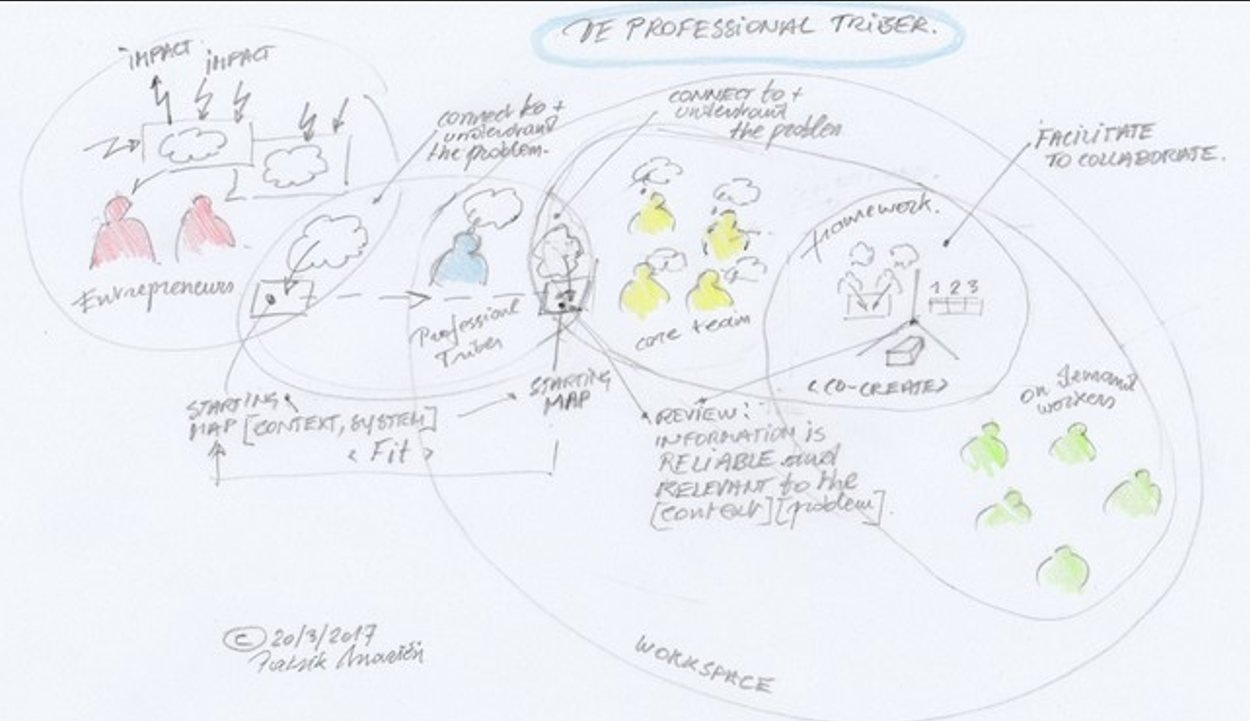 DE PROFESSIONAL TRIBER.
IMPACT
IMPACT
connect to +
understand
the problem.
CONNECT to +
understand
the problem
FACILITATE
TO COLLABORATE.
framework.
1 2 3
Entrepreneurs
Professional
Triber
core team
<CO-CREATE>
On demand
workers
STARTING
MAP [CONTEXT, SYSTEM]
< Fit >
STARTING
MAP
REVIEW:
INFORMATION is
RELIABLE and
RELEVANT to the
[context][problem].
© 20/3/2017
Patrik
WORKSPACE